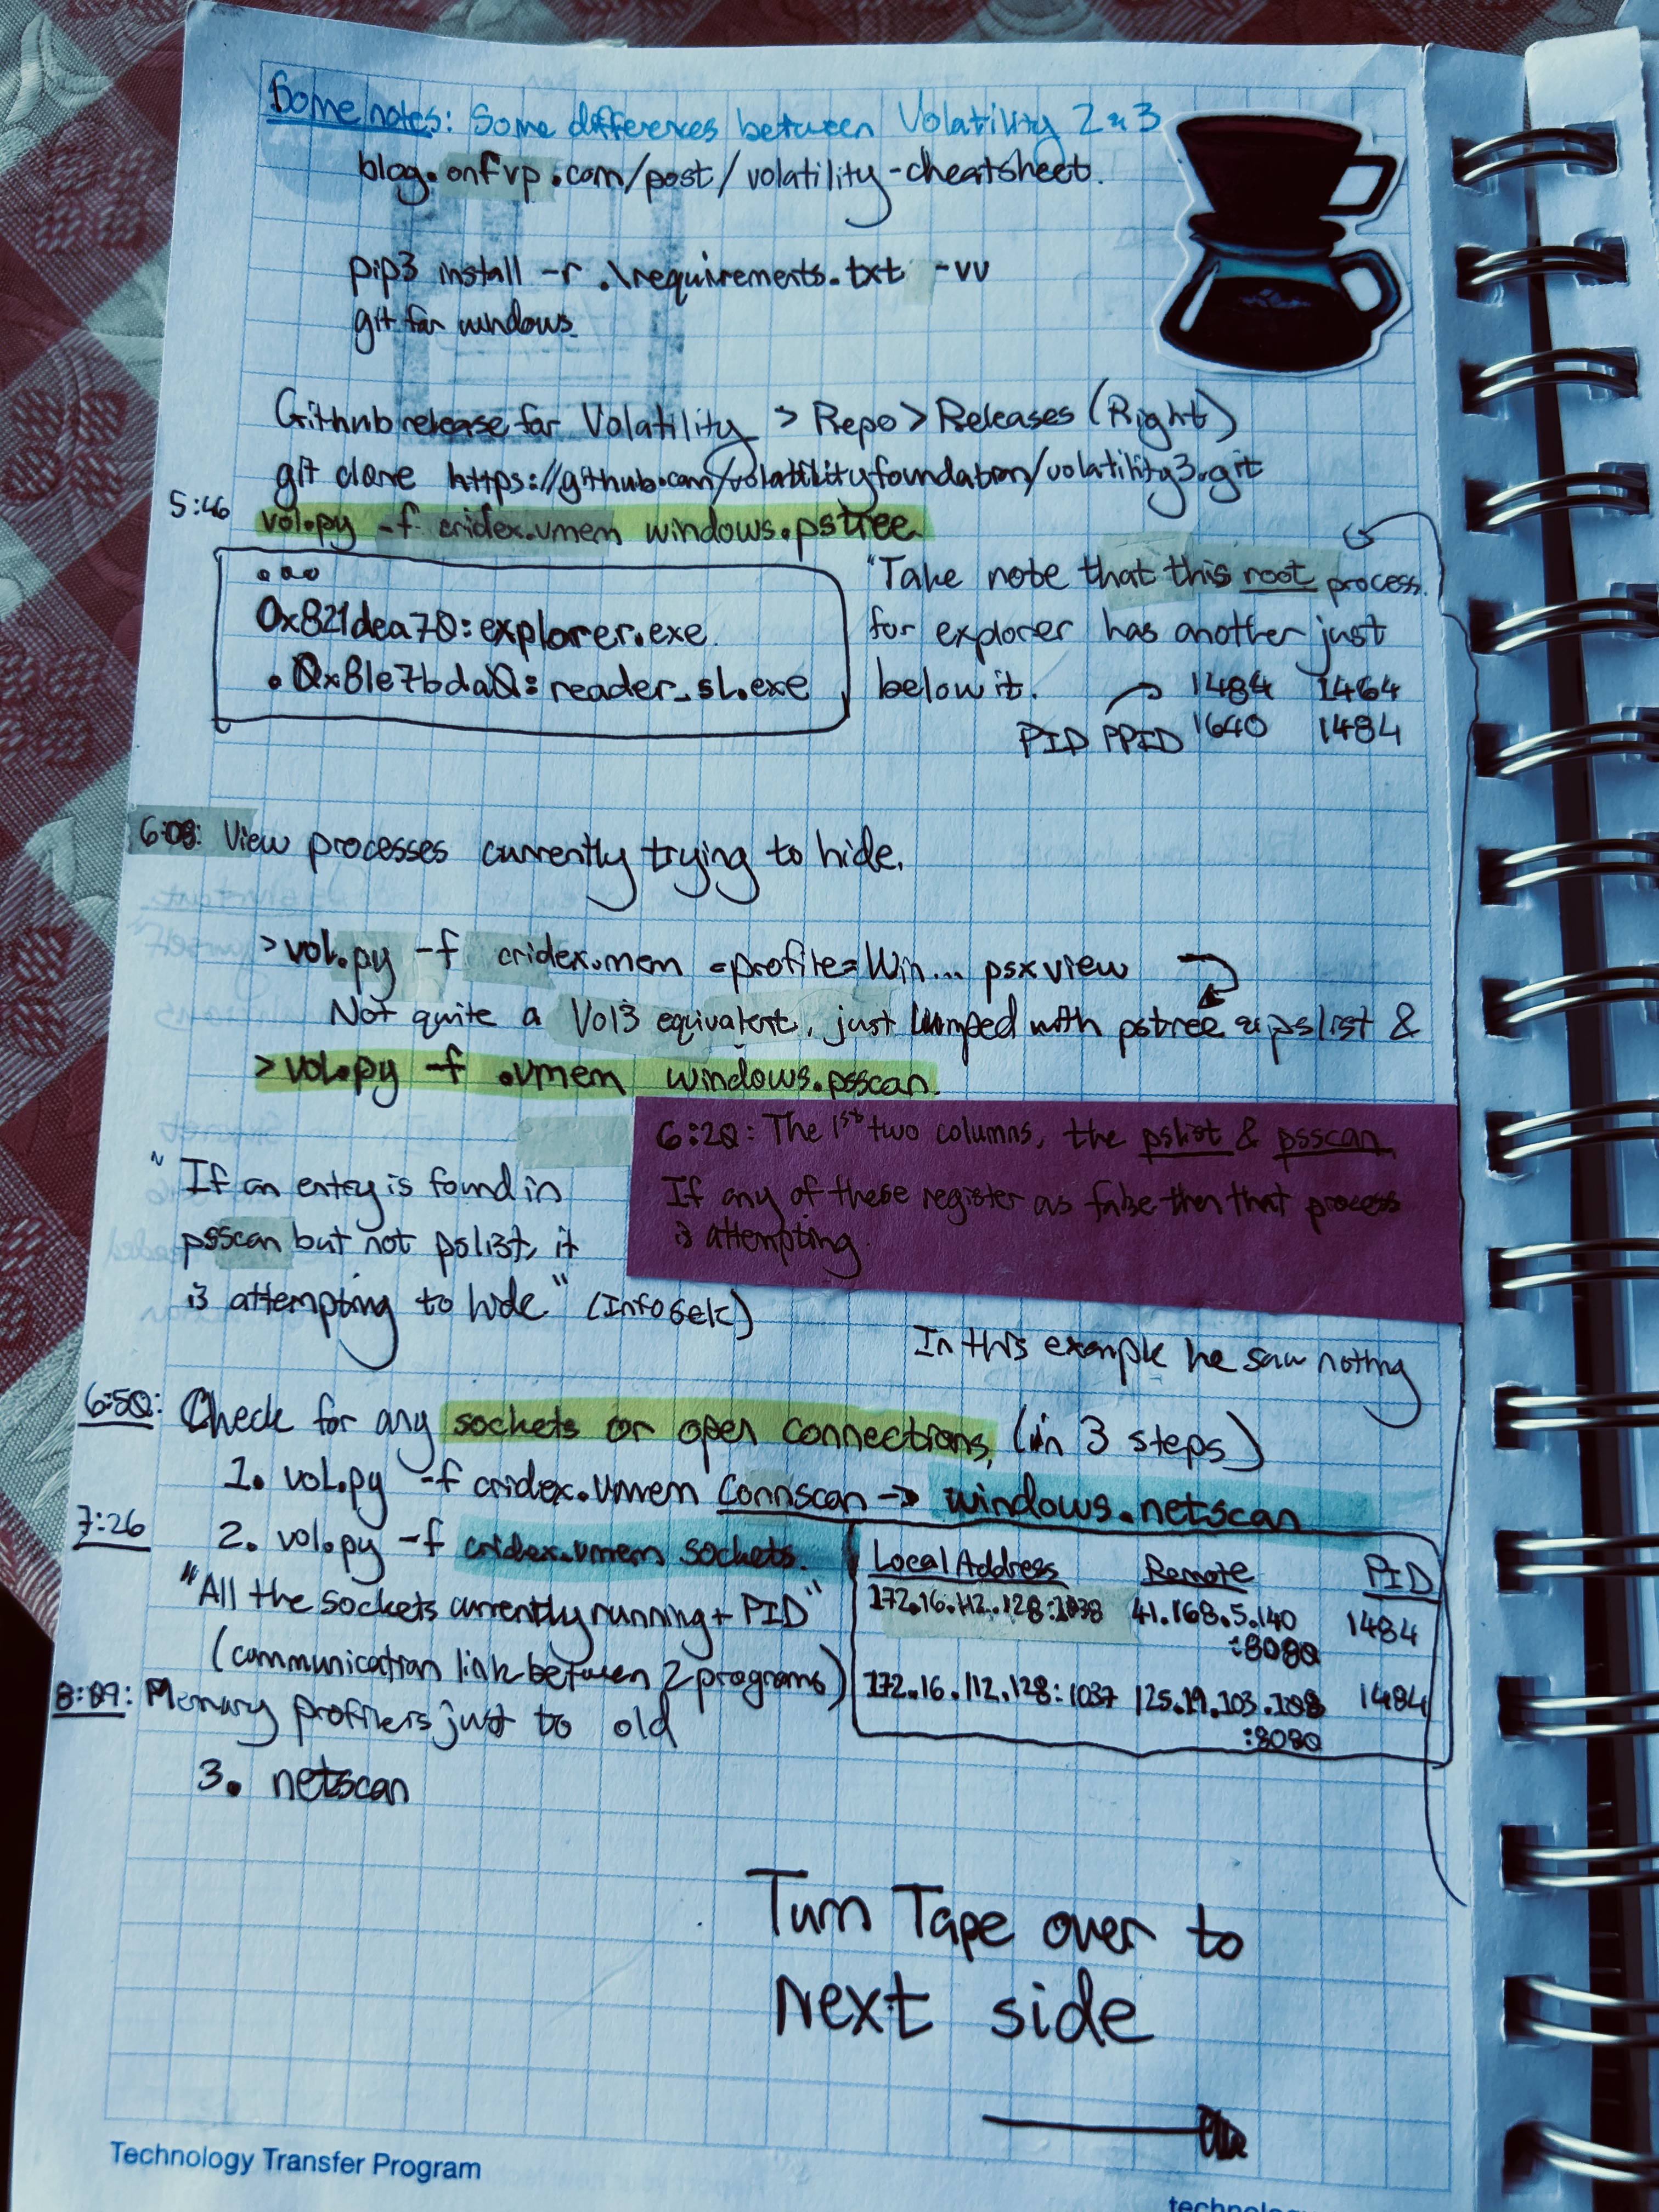 Some notes: Some differences between Volatility 2 & 3
blog.onfvp.com/post/volatility-cheatsheet.
pip3 install -r .\requirements.txt -vv
git for windows.
Github release for Volatility > Repo > Releases (Right)
git clone https://github.com/volatilityfoundation/volatility3.git
5:46 vol.py -f cridex.vmem windows.pstree
...
0x821dea70: explorer.exe
. 0x81e7bda0: reader_sl.exe
"Take note that this root process
for explorer has another just
below it. 1484 1464
PID PPID 1640 1484
6:03: View processes currently trying to hide.
>vol.py -f cridex.mem =profile=Win... psxview
Not quite a Vol3 equivalent, just lumped with pstree & pslist &
>vol.py -f .vmem windows.psscan.
6:20: The 1st two columns, the pslist & psscan
If any of these register as false then that process
is attempting
"If an entry is found in
psscan but not pslist, it
is attempting to hide" (Infosek)
In this example he saw nothing
6:50: Check for any sockets or open connections, (in 3 steps)
1. vol.py -f cridex.vmem connscan -> windows.netscan
7:26 2. vol.py -f cridex.vmem sockets.
Local Address Remote PID
172.16.112.128:1038 41.168.5.140 1484
:8080
172.16.112.128:1037 125.19.103.198 1484
:8080
"All the sockets currently running + PID"
(communication link between 2 programs)
8:09: Memory profilers just to old
3. netscan
Turn Tape over to
Next side
Technology Transfer Program